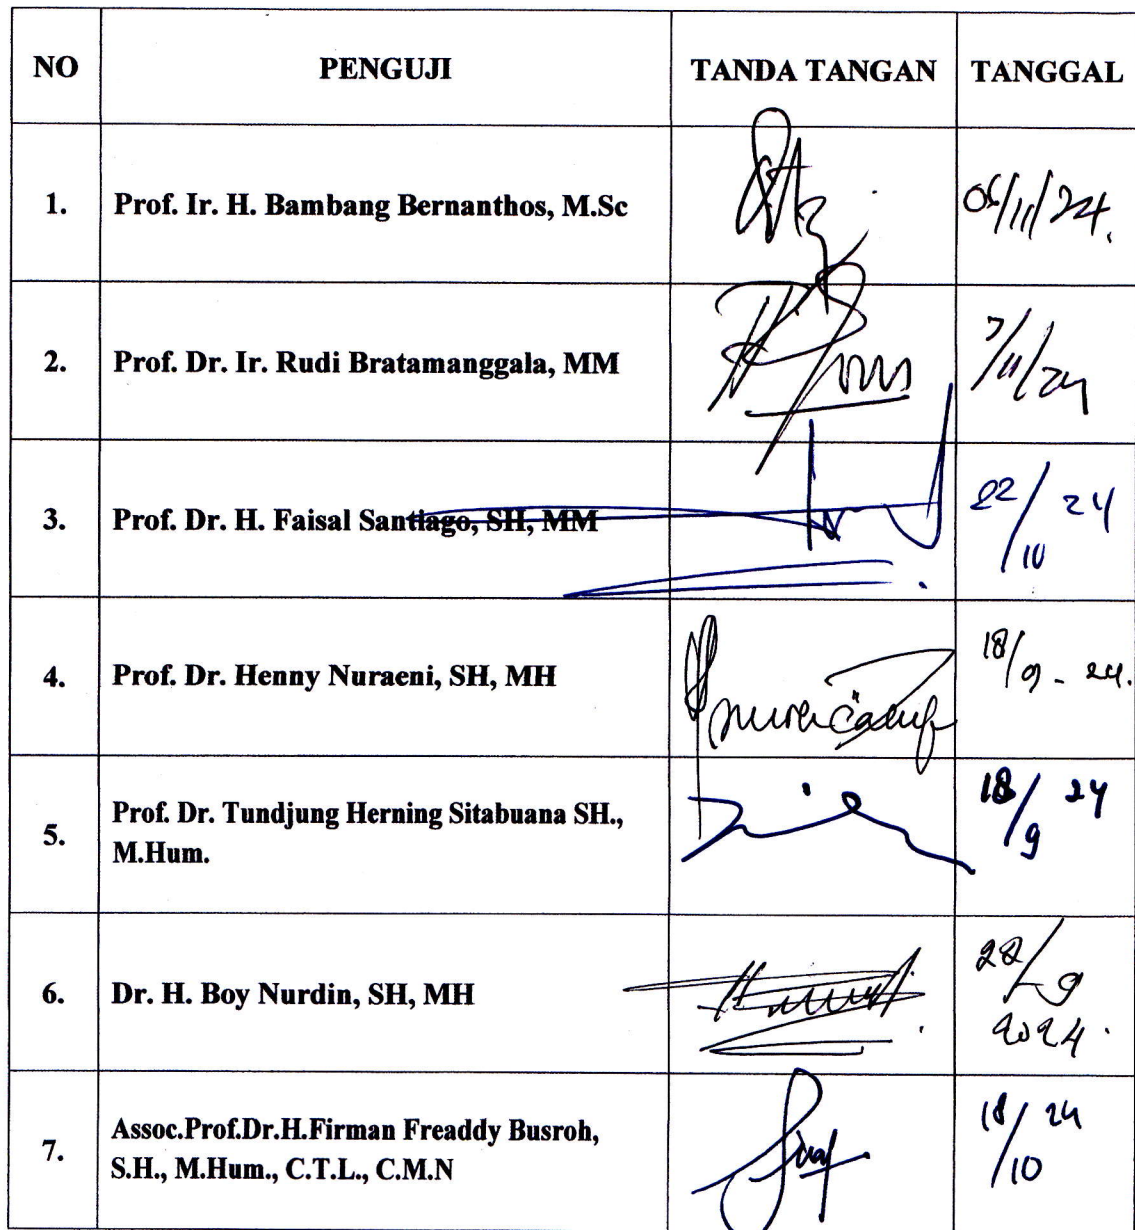 NO PENGUJI TANDA TANGAN TANGGAL
1. Prof. Ir. H. Bambang Bernanthos, M.Sc /11/24.
2. Prof. Dr. Ir. Rudi Bratamanggala, MM 7/11/24
3. Prof. Dr. H. Faisal Santiago, SH, MM 22/10 24
4. Prof. Dr. Henny Nuraeni, SH, MH 18/9 - 24.
5. Prof. Dr. Tundjung Herning Sitabuana SH.,
M.Hum. 18/9 24
6. Dr. H. Boy Nurdin, SH, MH /9
2024.
7. Assoc.Prof.Dr.H.Firman Freaddy Busroh,
S.H., M.Hum., C.T.L., C.M.N 18/10 24